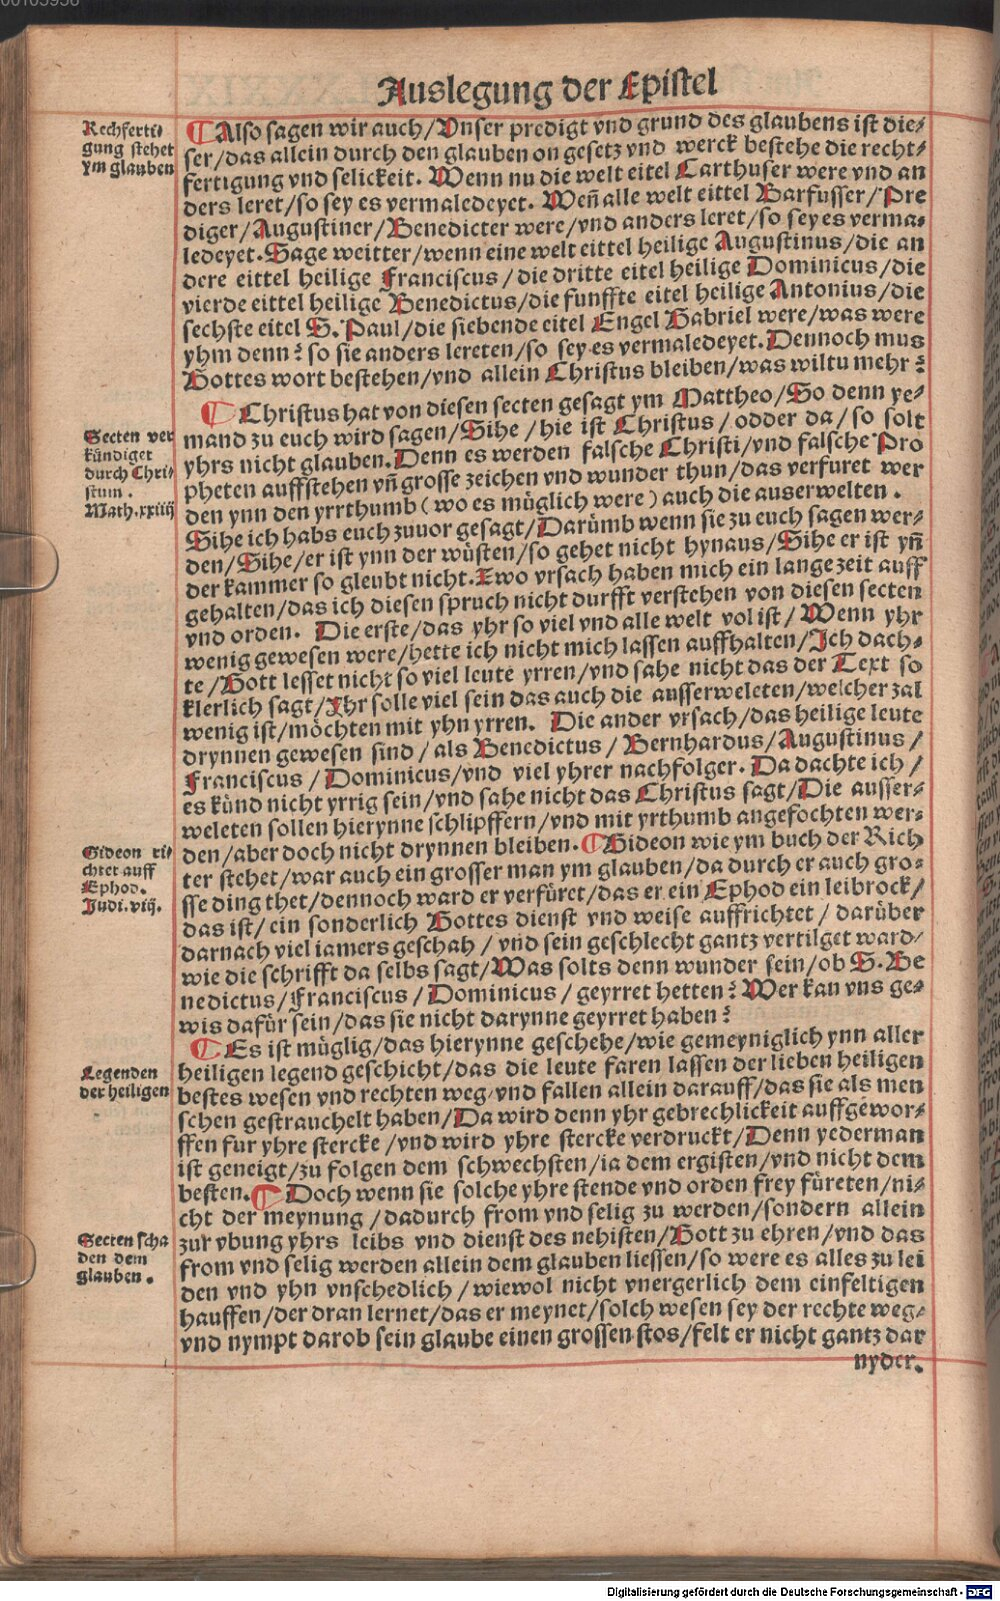 Auslegung der Epistel
Rechferti⸗
gung stehet
ym glauben
¶ Also sagen wir auch/Vnser predigt vnd grund des glaubens ist die⸗
ser/das allein durch den glauben on gesetz vnd werck bestehe die recht⸗
fertigung vnd selickeit. Wenn nu die welt eitel Carthuser were vnd an
ders leret/so sey es vermaledeyet. Weñ alle welt eittel Barfusser/Pre
diger/Augustiner/Benedicter were/vnd anders leret/so sey es verma⸗
ledeyet. Sage weitter/wenn eine welt eittel heilige Augustinus/die an
dere eittel heilige Franciscus/die dritte eitel heilige Dominicus/die
vierde eittel heilige Benedictus/die funffte eitel heilige Antonius/die
sechste eitel S. Paul/die siebende eitel Engel Gabriel were/was were
yhm denn? so sie anders lereten/so sey es vermaledeyet. Dennoch mus
Gottes wort bestehen/vnd allein Christus bleiben/was wiltu mehr?
Secten ver
kündiget
durch Chri⸗
stum.
Math.xxiiij
¶ Christus hat von diesen secten gesagt ym Mattheo/So denn ye⸗
mand zu euch wird sagen/Sihe/hie ist Christus/odder da/so solt
yhrs nicht glauben. Denn es werden falsche Christi/vnd falsche Pro
pheten auffstehen vñ grosse zeichen vnd wunder thun/das verfuret wer
den ynn den yrrthumb (wo es müglich were) auch die auserwelten.
Sihe ich habs euch zuuor gesagt/Darümb wenn sie zu euch sagen wer⸗
den/Sihe/er ist ynn der wüsten/so gehet nicht hynaus/Sihe er ist yñ
der kammer so gleubt nicht. Zwo vrsach haben mich ein lange zeit auff
gehalten/das ich diesen spruch nicht durfft verstehen von diesen secten
vnd orden. Die erste/das yhr so viel vnd alle welt vol ist/Wenn yhr
wenig gewesen were/hette ich nicht mich lassen auffhalten/Ich dach⸗
te/Gott lesset nicht so viel leute yrren/vnd sahe nicht das der Text so
klerlich sagt/Ihr solle viel sein das auch die ausserweleten/welcher zal
wenig ist/möchten mit yhn yrren. Die ander vrsach/das heilige leute
drynnen gewesen sind/als Benedictus/Bernhardus/Augustinus/
Franciscus/Dominicus/vnd viel yhrer nachfolger. Da dachte ich/
es künd nicht yrrig sein/vnd sahe nicht das Christus sagt/Die ausser⸗
weleten sollen hierynne schlipffern/vnd mit yrthumb angefochten wer⸗
Gideon ri⸗
chtet auff
Ephod.
Judi.viij.
den/aber doch nicht drynnen bleiben. ¶ Gideon wie ym buch der Rich
ter stehet/war auch ein grosser man ym glauben/da durch er auch gro⸗
sse ding thet/dennoch ward er verfüret/das er ein Ephod ein leibrock/
das ist/ein sonderlich Gottes dienst vnd weise auffrichtet/darüber
darnach viel iamers geschah/vnd sein geschlecht gantz vertilget ward/
wie die schrifft da selbs sagt/Was solts denn wunder sein/ob S. Be
nedictus/Franciscus/Dominicus/geyrret hetten? Wer kan vns ge⸗
wis dafür sein/das sie nicht darynne geyrret haben?
Legenden
der heiligen
¶ Es ist müglig/das hierynne geschehe/wie gemeyniglich ynn aller
heiligen legend geschicht/das die leute faren lassen der lieben heiligen
bestes wesen vnd rechten weg/vnd fallen allein darauff/das sie als men
schen gestrauchelt haben/Da wird denn yhr gebrechlickeit auffgewor⸗
ffen fur yhre stercke/vnd wird yhre stercke verdruckt/Denn yederman
ist geneigt/zu folgen dem schwechsten/ia dem ergisten/vnd nicht dem
besten. ¶ Doch wenn sie solche yhre stende vnd orden frey füreten/ni⸗
cht der meynung/dadurch from vnd selig zu werden/sondern allein
Secten scha
den dem
glauben.
zur vbung yhrs leibs vnd dienst des nehisten/Gott zu ehren/vnd das
from vnd selig werden allein dem glauben liessen/so were es alles zu lei
den vnd yhn vnschedlich/wiewol nicht vnergerlich dem einfeltigen
hauffen/der dran lernet/das er meynet/solch wesen sey der rechte weg/
vnd nympt darob sein glaube einen grossen stos/felt er nicht gantz dar
nyder.
Digitalisierung gefördert durch die Deutsche Forschungsgemeinschaft - DFG